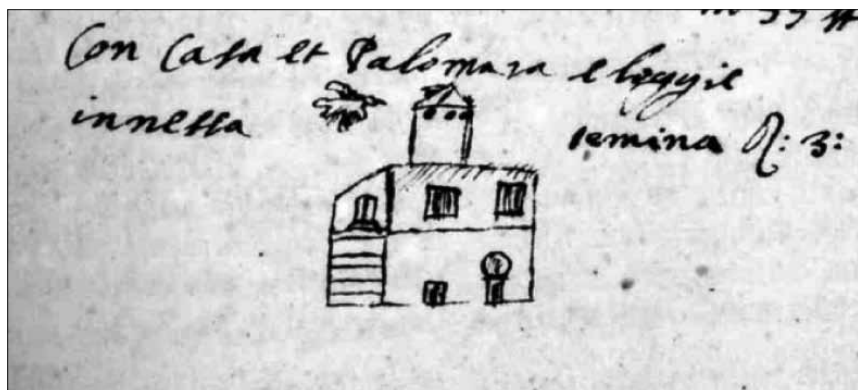 Con Casa et Palomara e loggie
innessa semina R: 3: